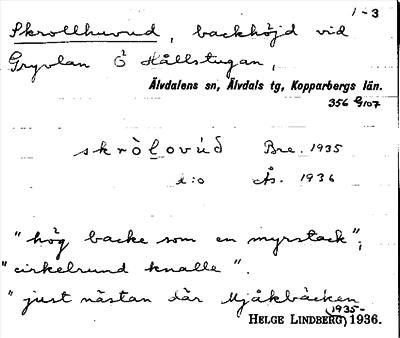 1-3
Skrollhuvud, backhöjd vid
Gryvlan Ö Hållstugan,
Älvdalens sn, Älvdals tg, Kopparbergs län.
356 G/107
skròlovúð Bre. 1935
d:o Ås. 1936
"hög backe som en myrstack";
"cirkelrund knalle".
"just nästan där Mjåkbäcken
HELGE LINDBERG (1935-) 1936.